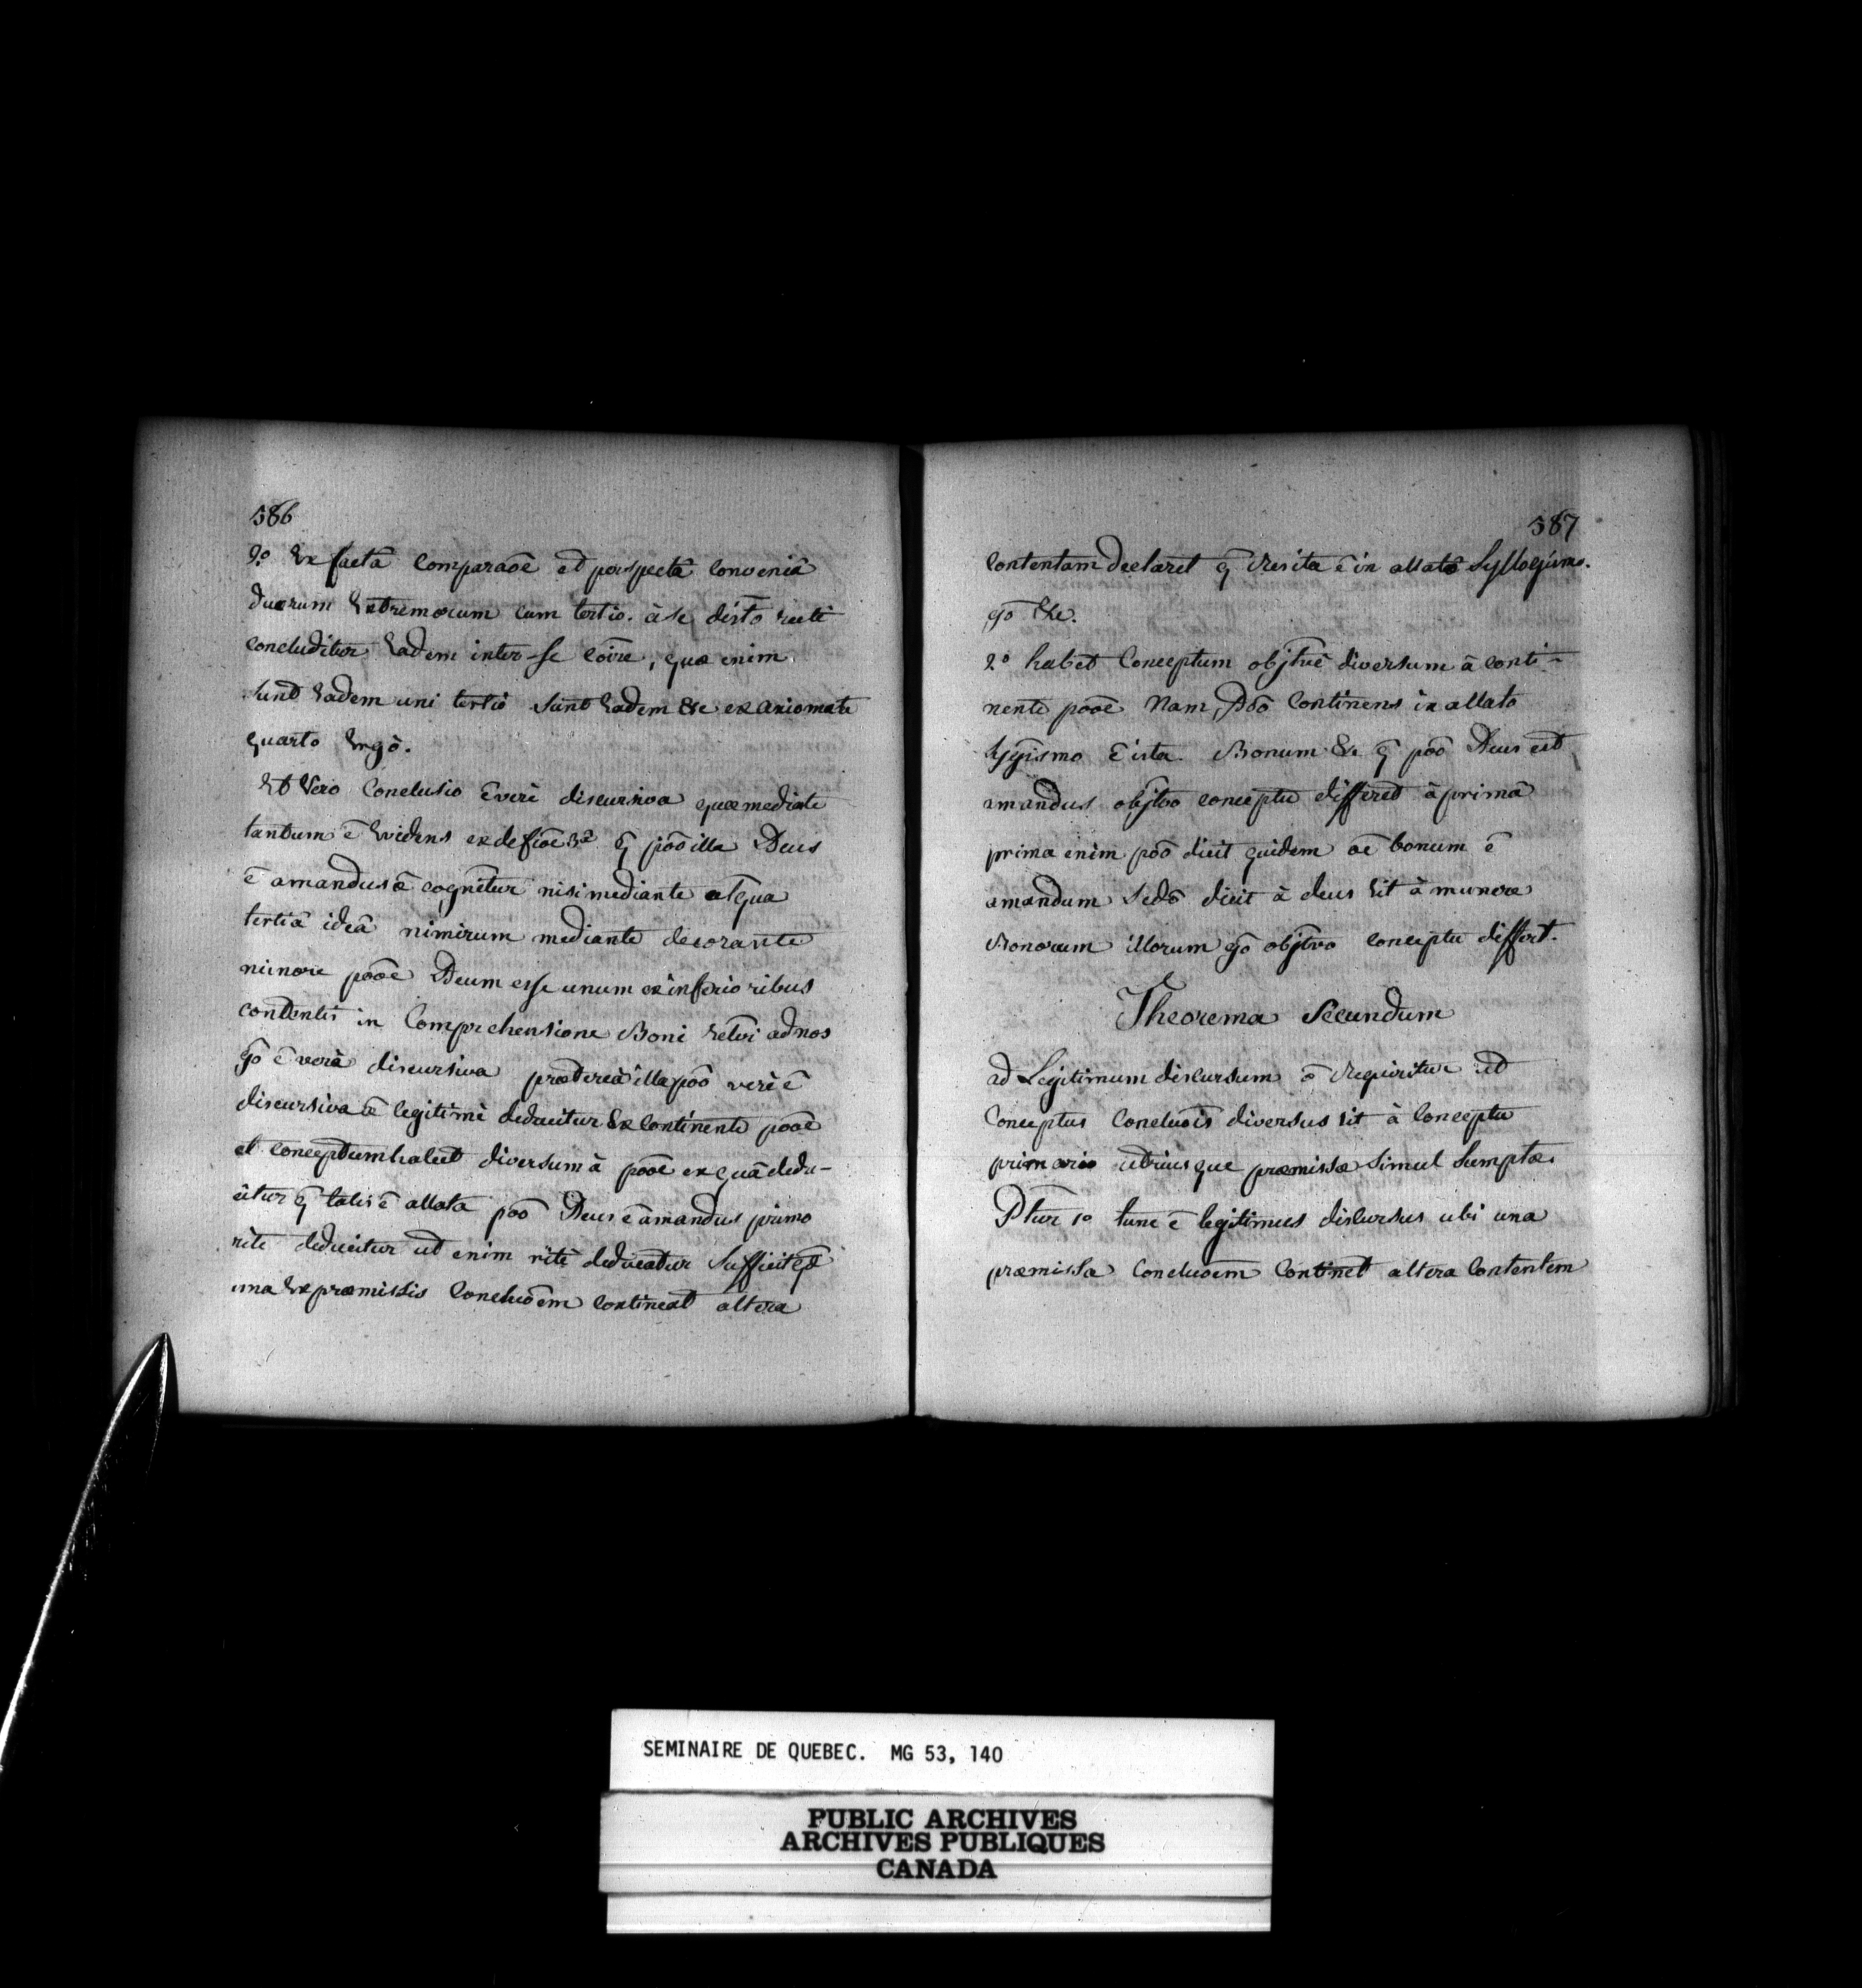 386
2º Ex factâ Comparaōe et perspectâ Conveniâ
duorum Extremorum cum tertio. à se disto recte
concluditur Eadem inter-se cōire, quæ enim
sunt Eadem uni tertio sunt Eadem &c ex axiomate
quarto Ergò.
Et Vero Conclusio ē verè discursiva quæ mediate
tantum ē Evidens ex defiōe 3ᵃ q̄ pōō illa Deus
ē amandus ō cognētur nisi mediante alqua
tertiâ ideâ nimirum mediante decorante
minore pōōe Deum esse unum ex inferioribus
contentis in Comprehensione Boni retvi ad nos
gō ē verè discursiva præterea illa pōō verè ē
discursiva ō legitimè deducitur Ex continente pōōe
et conceptum habet diversum à pōōe ex quâ dedu-
citur q̄ talis ē allata pōō Deus ē amandus primo
rite deducitur ut enim rite deducatur sufficit qd
una Ex præmissis Concluōem contineat altera
387
contentam declaret q̄ res ita ē in allato Syllogismo.
gō &c.
2º habet Conceptum objtivè diversum à conti-
nente pōōe Nam, pōō Continens in allato
sygismo ē ista. Bonum &c q̄ pōō Deus est
amandus objtvo conceptu differet à primâ
prima enim pōō dicit quidem ōē bonum ē
amandum sed ō dicit à deus sit à munere
Bonorum illorum gō objtvo conceptu differt.
Theorema Secundum
ad Legitimum discursum ō requiritur ut
Conceptus Concluōis diversus sit à Conceptu
primario utriusque præmissæ simul sumptæ.
Ptur 1º tunc ē legitimus discursus ubi una
præmissa Concluōem Continet altera Contentem
SEMINAIRE DE QUEBEC. MG 53, 140
PUBLIC ARCHIVES
ARCHIVES PUBLIQUES
CANADA